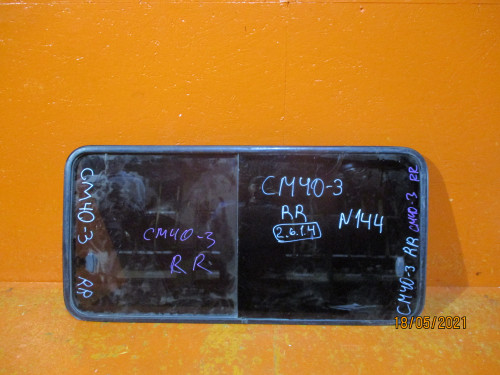 CM40-3 RR
CM40-3
RR
CM40-3
RR
2.6.1.4
N144
CM40-3 RR
CM40-3 RR
18/05/2021